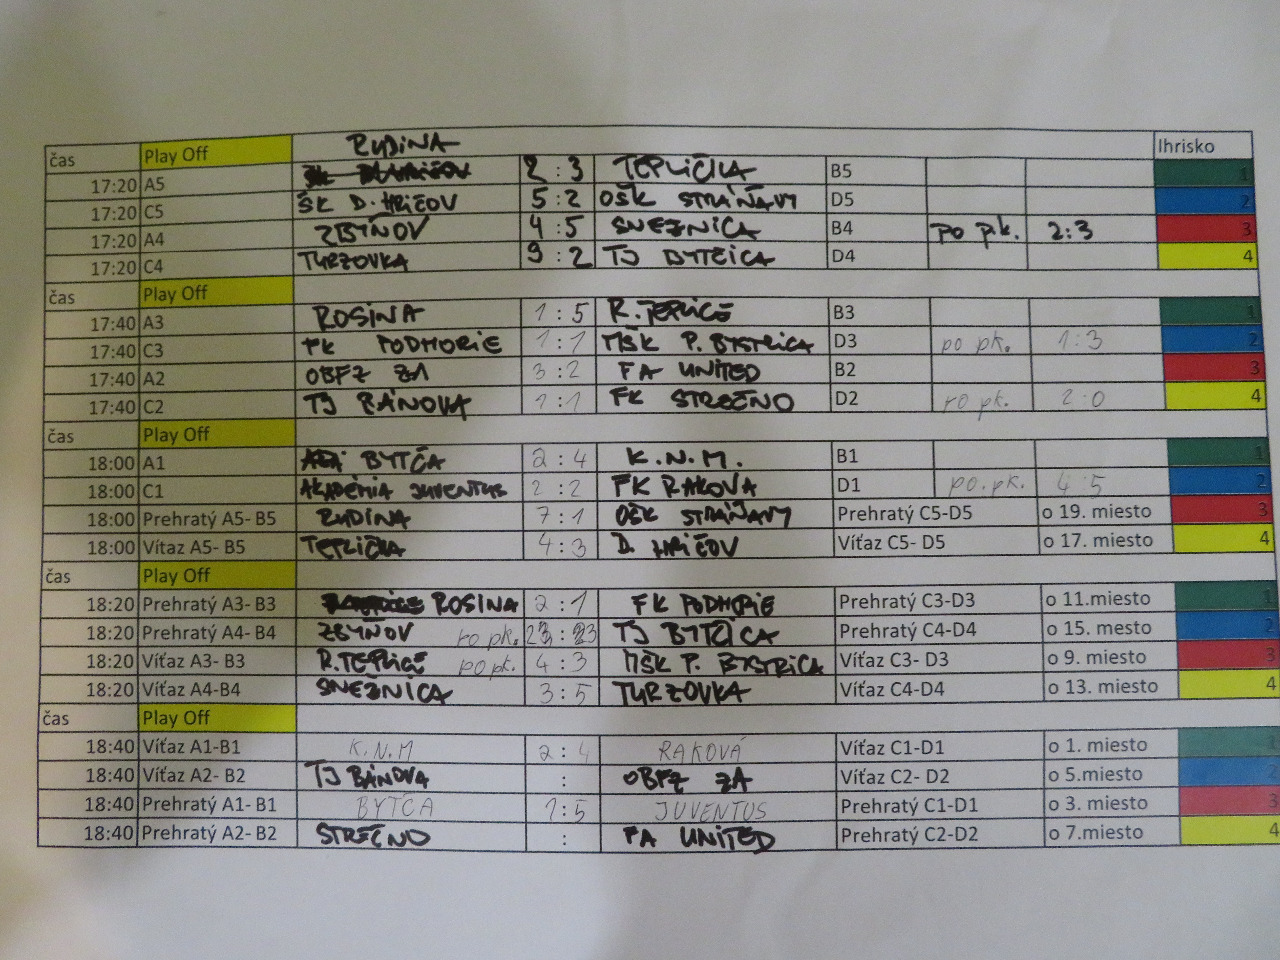 čas Play Off RUDINA Ihrisko
17:20 A5 2 : 3 TEPLIČKA B5 1
17:20 C5 ŠK D. HRIČOV 5 : 2 OŠK STRÁŇAVY D5 2
17:20 A4 ZBYŇOV 4 : 5 SNEZNICA B4 po pk. 2:3 3
17:20 C4 TURZOVKA 9 : 2 TJ BYTČICA D4 4
čas Play Off
17:40 A3 ROSINA 1 : 5 R. TEPLICE B3 1
17:40 C3 FK PODHORIE 1 : 1 MŠK P. BYSTRICA D3 po pk. 1:3 2
17:40 A2 OBFZ ZA 3 : 2 FA UNITED B2 3
17:40 C2 TJ BÁNOVA 1 : 1 FK STREČNO D2 po pk. 2:0 4
čas Play Off
18:00 A1 BYTČA 2 : 4 K.N.M. B1 1
18:00 C1 AKADÉMIA JUVENTUS 2 : 2 FK RAKOVA D1 po. pk. 4:5 2
18:00 Prehratý A5- B5 RUDINA 7 : 1 OŠK STRÁŇAVY Prehratý C5-D5 o 19. miesto 3
18:00 Vítaz A5- B5 TEPLIČKA 4 : 3 D. HRIČOV Víťaz C5- D5 o 17. miesto 4
čas Play Off
18:20 Prehratý A3- B3 ROSINA 2 : 1 FK PODHORIE Prehratý C3-D3 o 11.miesto 1
18:20 Prehratý A4- B4 ZBYŇOV po pk. : TJ BYTČICA Prehratý C4-D4 o 15. mesto 2
18:20 Víťaz A3- B3 R. TEPLICE po pk. 4 : 3 MŠK P. BYSTRICA Víťaz C3- D3 o 9. miesto 3
18:20 Víťaz A4-B4 SNEŽNICA 3 : 5 TURZOVKA Víťaz C4-D4 o 13. miesto 4
čas Play Off
18:40 Víťaz A1-B1 K.N.M 2 : 4 RAKOVÁ Víťaz C1-D1 o 1. miesto 1
18:40 Víťaz A2- B2 TJ BÁNOVA : OBFZ ZA Víťaz C2- D2 o 5.miesto 2
18:40 Prehratý A1- B1 BYTČA 1 : 5 JUVENTUS Prehratý C1-D1 o 3. miesto 3
18:40 Prehratý A2- B2 STREČNO : FA UNITED Prehratý C2-D2 o 7.miesto 4